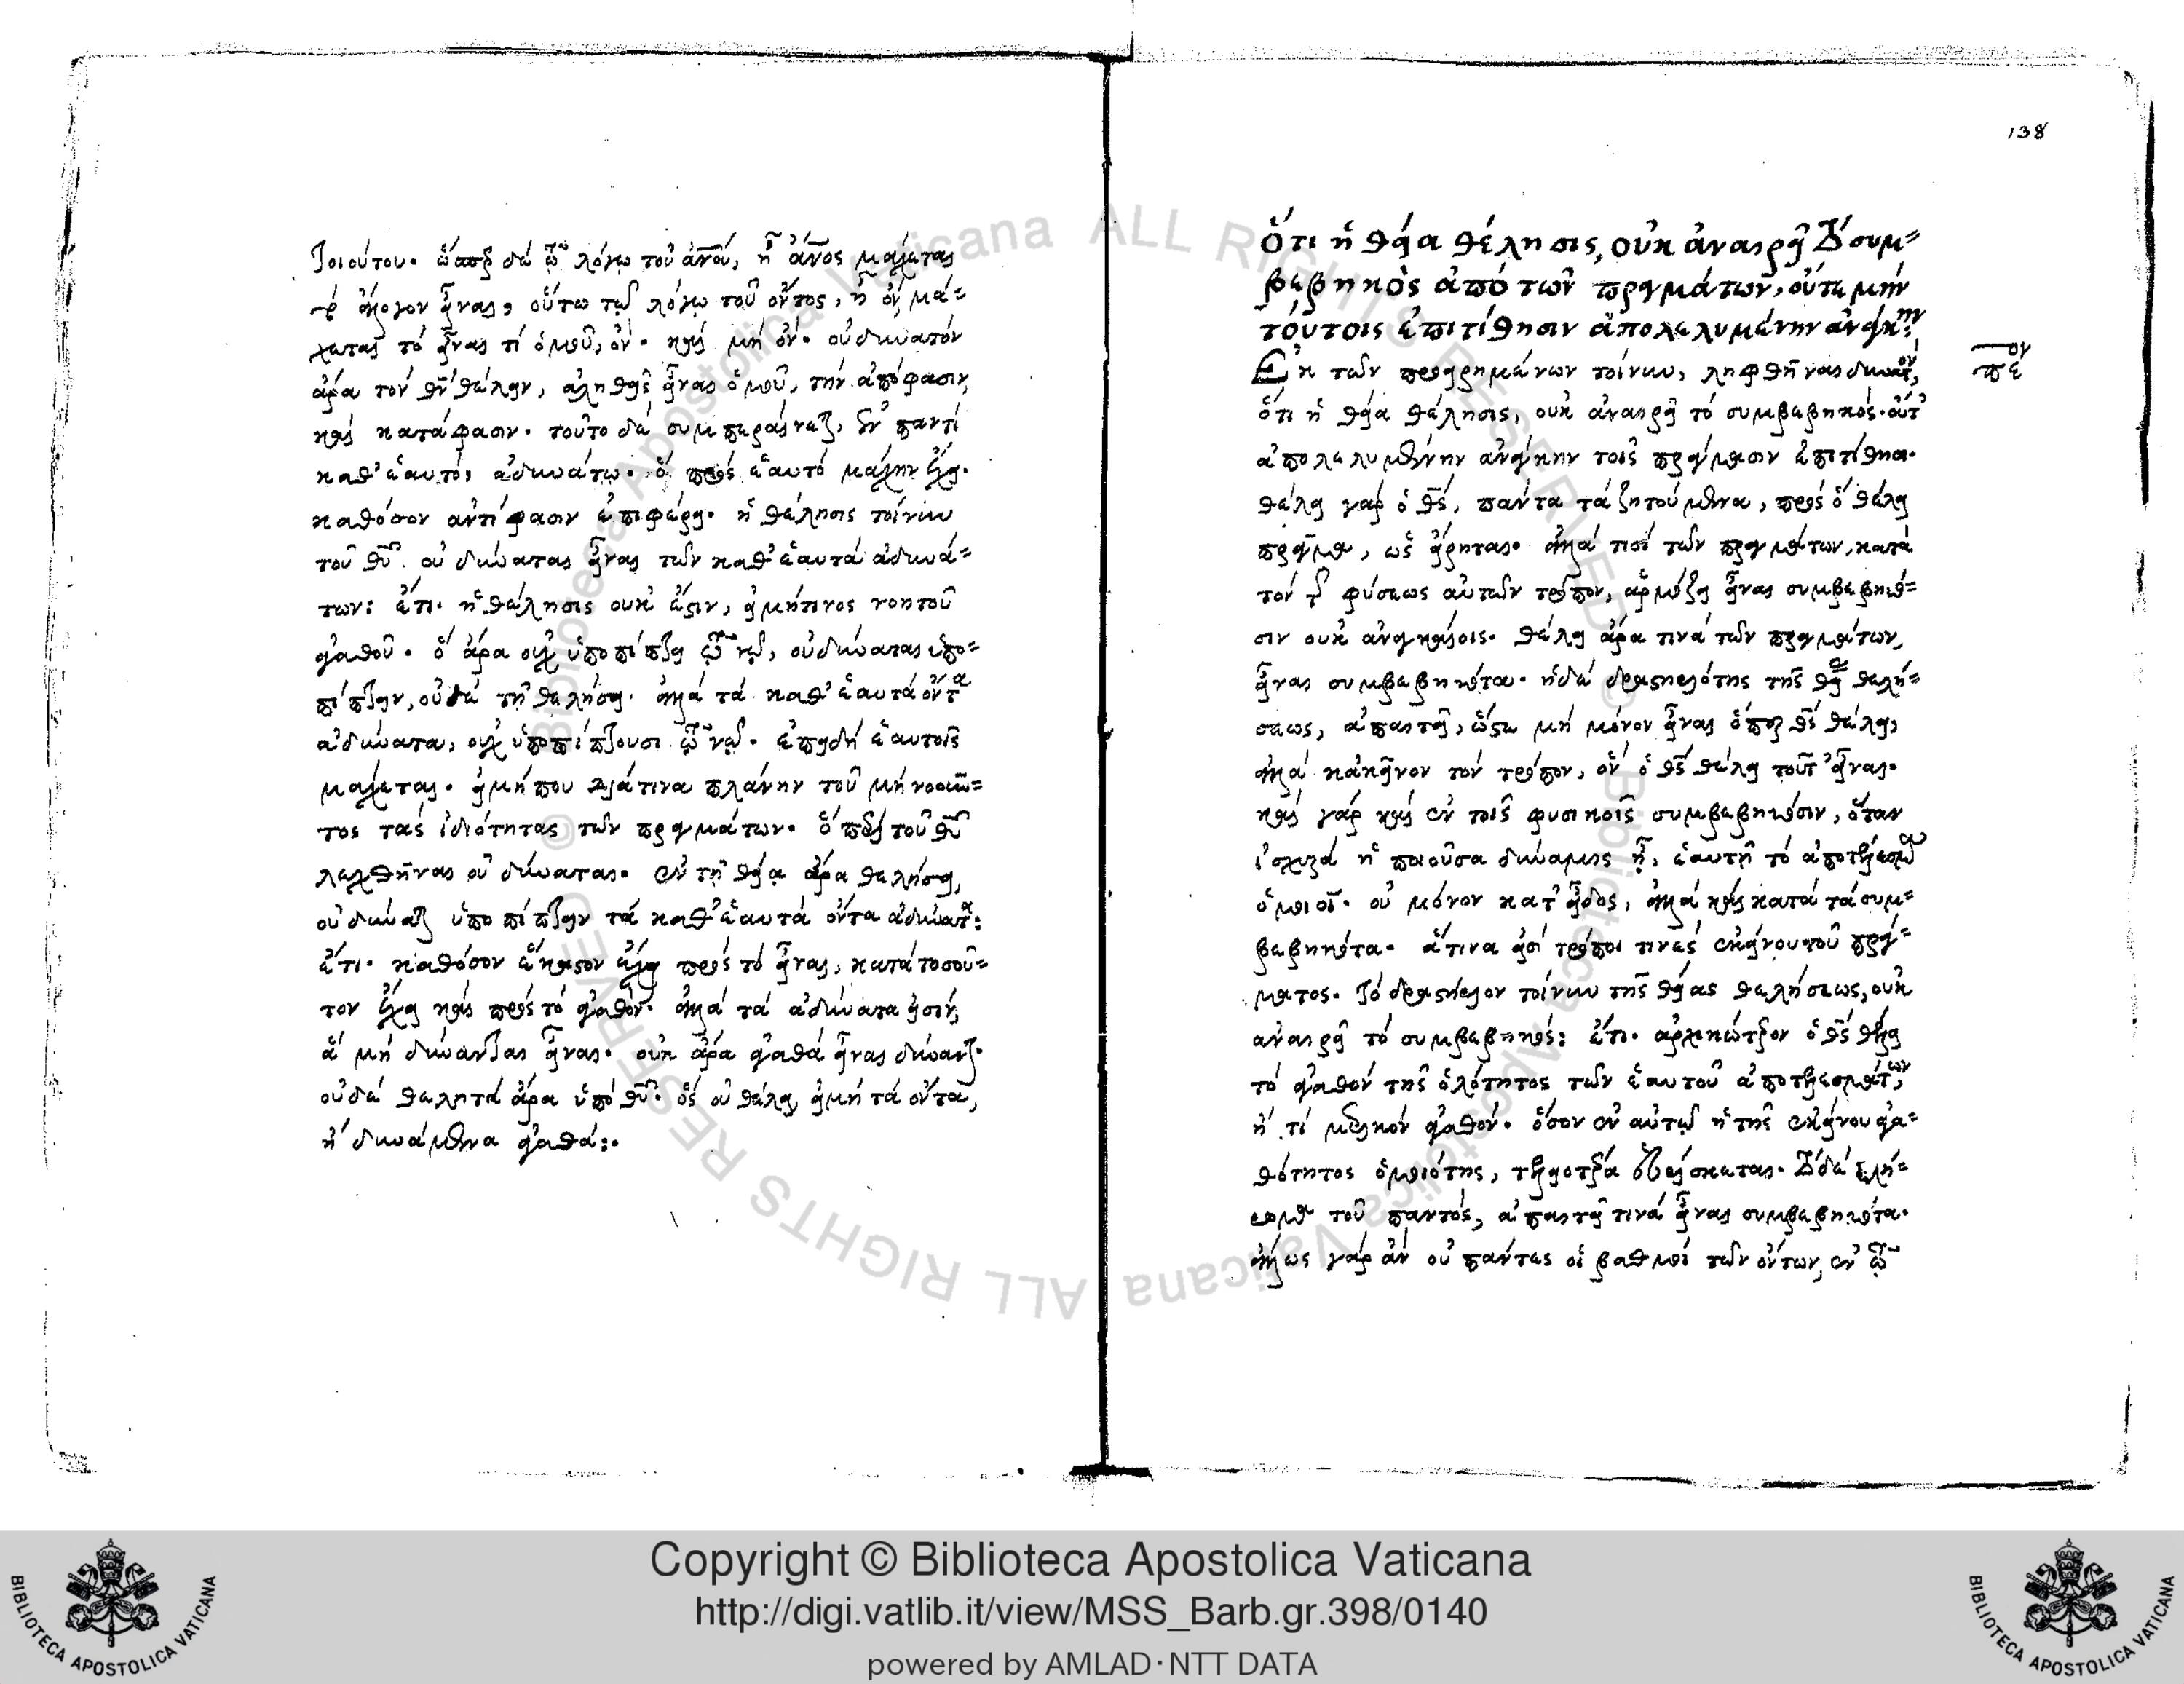 τοιούτου. ὥσπερ δὲ τῷ λόγῳ τοῦ ἀνου, ᾗ ἄνος μάχεται
τὸ ἄλογον εἶναι, οὕτω τῷ λόγῳ τοῦ ὄντος, ᾗ ὂν μά=
χεται τὸ εἶναι τὶ ὁμοῦ, ὂν. καὶ μὴ ὄν. οὐ δυνατὸν
ἄρα τὸν θν θέλειν, ἀληθῆ εἶναι ὁμοῦ, τὴν ἀπόφασιν,
καὶ κατάφασιν. τοῦτο δὲ συμπεραίνεται, ἐν παντὶ
καθ' ἑαυτὸ, ἀδυνάτῳ. ὃ πρὸς ἑαυτὸ μάχην ἔχει.
καθόσον ἀντίφασιν ἐπιφέρει. ἡ θέλησις τοίνυν
τοῦ θυ οὐ δύναται εἶναι τῶν καθ' ἑαυτὰ ἀδυνά=
των: ἔτι. ἡ θέλησις οὐκ ἔστιν, εἰμήτινος νοητοῦ
ἀγαθοῦ. ὃ ἄρα οὐχ ὑποπίπτει τῷ νῷ, οὐ δύναται ὑπο=
πίπτειν, οὐδὲ τῇ θελήσει. ἀλλὰ τὰ καθ' ἑαυτὰ ὄντα
ἀδύνατα, οὐχ ὑποπίπτουσι τῷ νῷ. ἐπειδὴ ἑαυτοῖς
μάχεται. εἰμήπου διά τινα πλάνην τοῦ μὴ νοοῦν=
τος τὰς ἰδιότητας τῶν πραγμάτων. ὃ περὶ τοῦ θυ
λεχθῆναι οὐ δύναται. ἐν τῇ θείᾳ ἄρα θελήσει,
οὐ δύναται ὑποπίπτειν τὰ καθ' ἑαυτὰ ὄντα ἀδύνατα:
ἔτι. καθόσον ἕκαστον ἔχει πρὸς τὸ εἶναι, κατὰ τοσοῦ=
τον ἔχει καὶ πρὸς τὸ ἀγαθόν. ἀλλὰ τὰ ἀδύνατα εἰσὶν,
ἃ μὴ δύνανται εἶναι. οὐκ ἄρα ἀγαθὰ εἶναι δύνανται.
οὐδὲ θελητὰ ἄρα ὑπὸ θυ. ὃς οὐ θέλει, εἰμὴ τὰ ὄντα,
ἢ δυνάμενα ἀγαθά:.
138
Ὅτι ἡ θεία θέλησις, οὐκ ἀναιρεῖ τὸ συμ=
βεβηκὸς ἀπὸ τῶν πραγμάτων, οὔτε μὴν
τούτοις ἐπιτίθησιν ἀπολελυμένην ἀνάγκην:
Ἐκ τῶν προειρημένων τοίνυν, ληφθῆναι δυνατὸν,
πε ον
ὅτι ἡ θεία θέλησις, οὐκ ἀναιρεῖ τὸ συμβεβηκός. οὔτ'
ἀπολελυμένην ἀνάγκην τοῖς πράγμασιν ἐπιτίθησι.
θέλει γὰρ ὁ θς, πάντα τὰ ζητούμενα, πρὸς ὃ θέλει
πρᾶγμα, ὡς εἴρηται. ἀλλά τισι τῶν πραγμάτων, κατὰ
τὸν τῆς φύσεως αὐτῶν τρόπον, ἁρμόζει εἶναι συμβεβηκό=
σιν οὐκ ἀναγκαίοις. θέλει ἄρα τινὰ τῶν πραγμάτων,
εἶναι συμβεβηκότα. ἡ δὲ δραστηριότης τῆς θείας θελή=
σεως, ἀπαιτεῖ, ὥστε μὴ μόνον εἶναι ὅπερ θς θέλει,
ἀλλὰ κἀκεῖνον τὸν τρόπον, ὃν ὁ θς θέλει τοῦτ' εἶναι.
καὶ γὰρ καὶ ἐν τοῖς φυσικοῖς συμβεβηκόσιν, ὅταν
ἰσχυρὰ ἡ ποιοῦσα δύναμις ᾖ, ἑαυτῇ τὸ ἀποτέλεσμα
ὁμοιοῖ. οὐ μόνον κατ' εἶδος, ἀλλὰ καὶ κατὰ τὰ συμ=
βεβηκότα. ἅτινα εἰσὶ τρόποι τινὲς ἐκείνου τοῦ πράγ=
ματος. τὸ δραστήριον τοίνυν τῆς θείας θελήσεως, οὐκ
ἀναιρεῖ τὸ συμβεβηκός: ἔτι. ἀρχικώτερον ὁ θς θέλει
τὸ ἀγαθὸν τῆς ὁλότητος τῶν ἑαυτοῦ ἀποτελεσμάτων,
ἤ τι μερικὸν ἀγαθόν. ὅσον ἐν αὐτῷ ἡ τῆς ἐκείνου ἀγα=
θότητος ὁμοιότης, τελειοτέρα εὑρίσκεται. τὸ δὲ πλή=
ρωμα τοῦ παντὸς, ἀπαιτεῖ τινὰ εἶναι συμβεβηκότα.
ἄλλως γὰρ ἂν οὐ πάντες οἱ βαθμοὶ τῶν ὄντων, ἐν τῷ
Copyright © Biblioteca Apostolica Vaticana
http://digi.vatlib.it/view/MSS_Barb.gr.398/0140
powered by AMLAD·NTT DATA
BIBLIOTECA APOSTOLICA VATICANA
BIBLIOTECA APOSTOLICA VATICANA